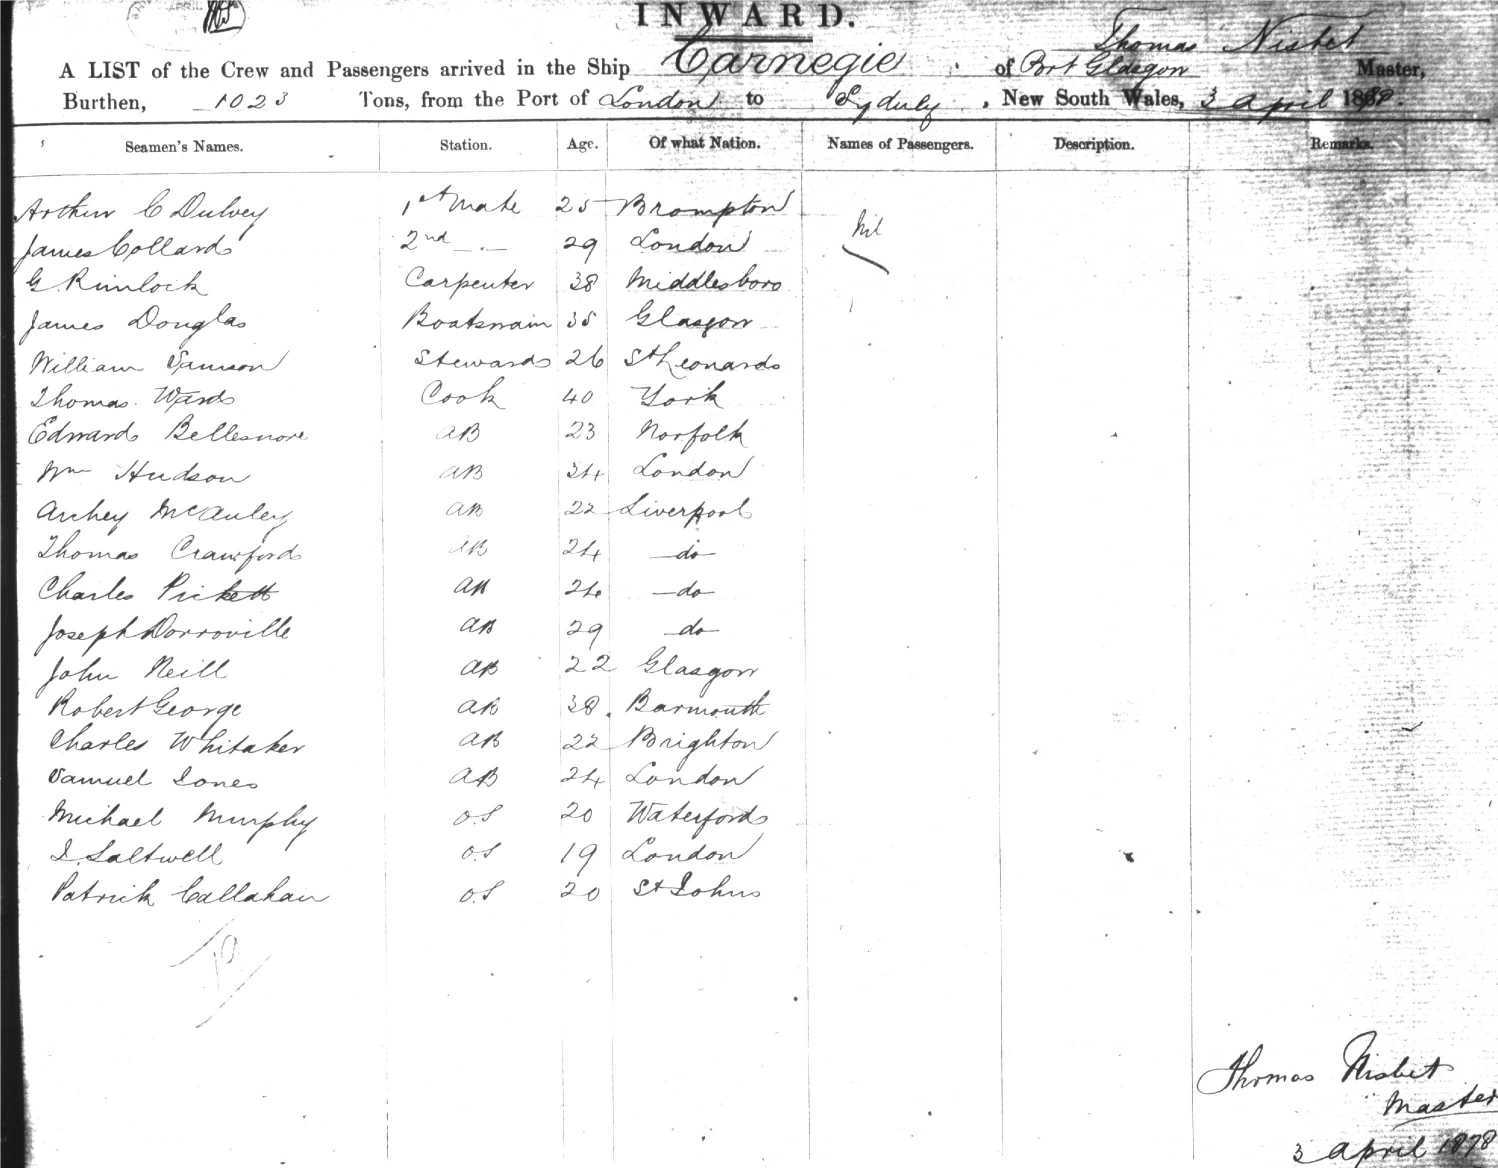 INWARD.
Thomas Nisbet
A LIST of the Crew and Passengers arrived in the Ship Carnegie of Port Glasgow Master,
Burthen, 1023 Tons, from the Port of London to , New South Wales, 3 April 1878.
Seamen's Names. Station. Age. Of what Nation. Names of Passengers. Description. Remarks.
Arthur C Dulvey 1st Mate 25 Brompton Nil
James Collard 2nd - 29 London
G. Rimlock Carpenter 38 Middlesboro
James Douglas Boatswain 35 Glasgow
William Samson Steward 26 St Leonards
Thomas Ward Cook 40 York
Edward Bellesmore AB 23 Norfolk
Wm Hudson AB 34 London
Archey McAuley AB 22 Liverpool
Thomas Crawford AB 24 do
Charles Pickett AB 24 do
Joseph Dorroville AB 29 do
John Neill AB 22 Glasgow
Robert George AB 38 Barmouth
Charles Whitaker AB 22 Brighton
Samuel Jones AB 24 London
Michael Murphy O.S 20 Waterford
J. Saltwell O.S 19 London
Patrick Callahan O.S 20 St Johns
Thomas Nisbet
Master
3 April 1878